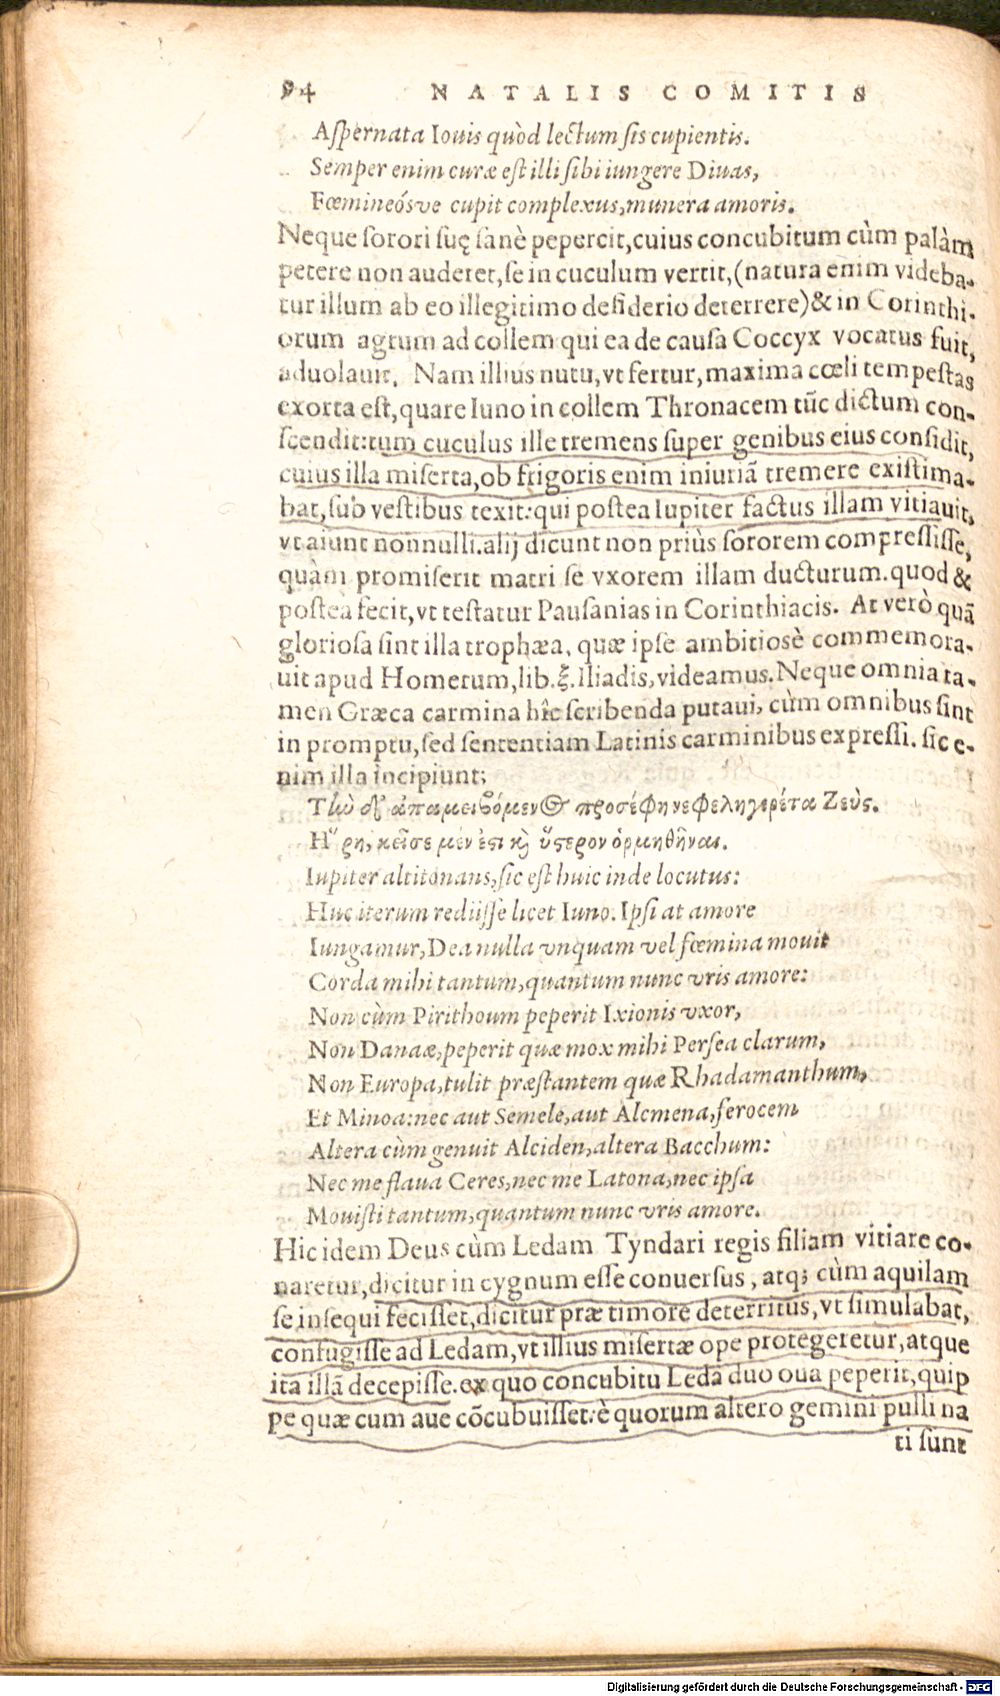 94 NATALIS COMITIS
Aſpernata Iouis quòd lectum ſis cupientis.
Semper enim curæ eſt illi ſibi iungere Diuas,
Fœmineósve cupit complexus, munera amoris.
Neque ſorori ſuę ſanè pepercit, cuius concubitum cùm palàm
petere non auderet, ſe in cuculum vertit, (natura enim videba-
tur illum ab eo illegitimo deſiderio deterrere) & in Corinthi-
orum agrum ad collem qui ea de cauſa Coccyx vocatus fuit,
aduolauit. Nam illius nutu, vt fertur, maxima cœli tempeſtas
exorta eſt, quare Iuno in collem Thronacem tũc dictum con-
ſcendit: tum cuculus ille tremens ſuper genibus eius conſidit,
cuius illa miſerta, ob frigoris enim iniuriã tremere exiſtima-
bat, ſub veſtibus texit: qui poſtea Iupiter factus illam vitiauit,
vt aiunt nonnulli. alij dicunt non priùs ſororem compreſſiſſe,
quàm promiſerit matri ſe vxorem illam ducturum. quod &
poſtea fecit, vt teſtatur Pauſanias in Corinthiacis. At verò quã
glorioſa ſint illa trophæa, quæ ipſe ambitiosè commemora-
uit apud Homerum, lib. ξ. Iliadis, videamus. Neque omnia ta-
men Græca carmina hîc ſcribenda putaui, cùm omnibus ſint
in promptu, ſed ſententiam Latinis carminibus expreſſi. ſic e-
nim illa incipiunt;
Τὴν δ' ἀπαμειβόμενος προσέφη νεφεληγερέτα Ζεὺς.
Ἥρη, κεῖσε μὲν ἔστι καὶ ὕστερον ὁρμηθῆναι.
Iupiter altitonans, ſic eſt huic inde locutus:
Huc iterum rediiſſe licet Iuno. Ipſi at amore
Iungamur, Dea nulla vnquam vel fœmina mouit
Corda mihi tantum, quantum nunc vris amore:
Non cùm Pirithoum peperit Ixionis vxor,
Non Danaæ, peperit quæ mox mihi Perſea clarum,
Non Europa, tulit præſtantem quæ Rhadamanthum,
Et Minoa: nec aut Semele, aut Alcmena, ferocem
Altera cùm genuit Alciden, altera Bacchum:
Nec me flaua Ceres, nec me Latona, nec ipſa
Mouiſti tantum, quantum nunc vris amore.
Hic idem Deus cùm Ledam Tyndari regis filiam vitiare co-
naretur, dicitur in cygnum eſſe conuerſus, atq; cùm aquilam
ſe inſequi feciſſet, dicitur præ timore deterritus, vt ſimulabat,
confugiſſe ad Ledam, vt illius miſertæ ope protegeretur, atque
ita illã decepiſſe. ex quo concubitu Leda duo oua peperit, quip
pe quæ cum aue cõcubuiſſet: è quorum altero gemini pulli na
ti ſunt
Digitalisierung gefördert durch die Deutsche Forschungsgemeinschaft - DFG